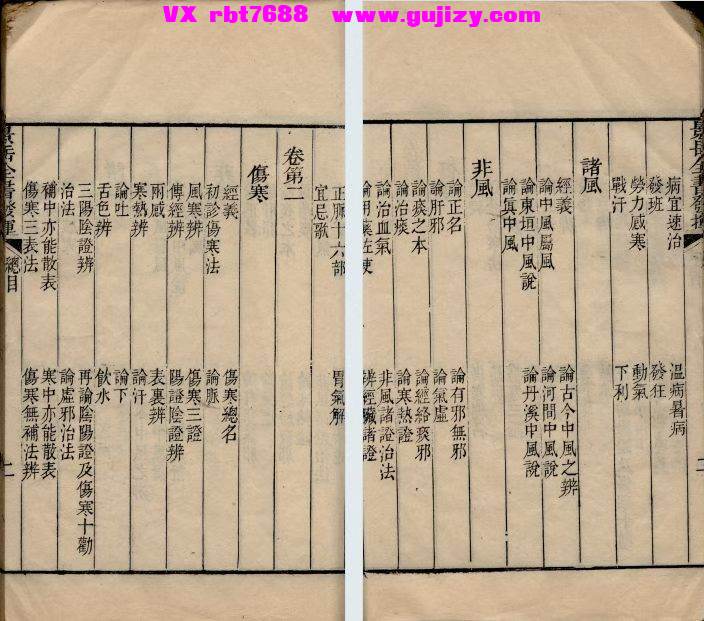 VX rbt7688 www.gujizy.com
病宜速治　溫病暑病
發班　發狂
勞力感寒　動氣
戰汗　下利
諸風
經義　論古今中風之辨
論中風屬風　論河間中風說
論東垣中風說　論丹溪中風說
論眞中風
非風
論正名　論有邪無邪
論肝邪　論氣虛
論痰之本　論經絡痰邪
論治痰　論寒熱證
論治血氣　非風諸證治法
論用藥佐使　辨經臟諸證
正脈十六部　胃氣解
宜忌歌
卷第二
傷寒
經義　傷寒總名
初診傷寒法　論脈
風寒辨　傷寒三證
傳經辨　陽證陰證辨
兩感　表裏辨
寒熱辨　論汗
論吐　論下
舌色辨　飲水
三陽陰證辨　再論陰陽證及傷寒十勸
治法　論虛邪治法
補中亦能散表　寒中亦能散表
傷寒三表法　傷寒無補法辨
景岳全書發揮　總目　二